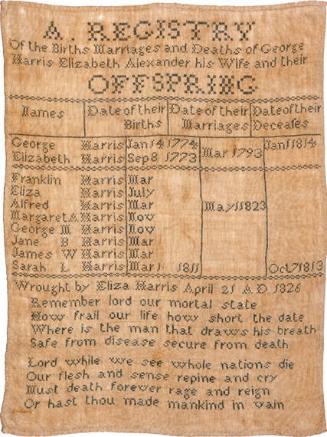 A. REGISTRY
Of the Births Marriages and Deaths of George
Harris Elizabeth Alexander his Wife and their
OFFSPRING
Names Date of their Births Date of their Marriages Date of their Deceases
George Harris Jan 14 1774 Mar 1793 Jan 1 1814
Elizabeth Harris Sep 8 1773
Franklin Harris Mar
Eliza Harris July
Alfred Harris Mar May 1 1823
Margaret A Harris Nov
George M Harris Nov
Jane B Harris Mar
James W Harris Mar
Sarah L Harris Mar 1 1811 Oct 7 1813
Wrought by Eliza Harris April 21 A D 1826
Remember lord our mortal state
How frail our life how short the date
Where is the man that draws his breath
Safe from disease secure from death
Lord while we see whole nations die
Our flesh and sense repine and cry
Must death forever rage and reign
Or hast thou made mankind in vain